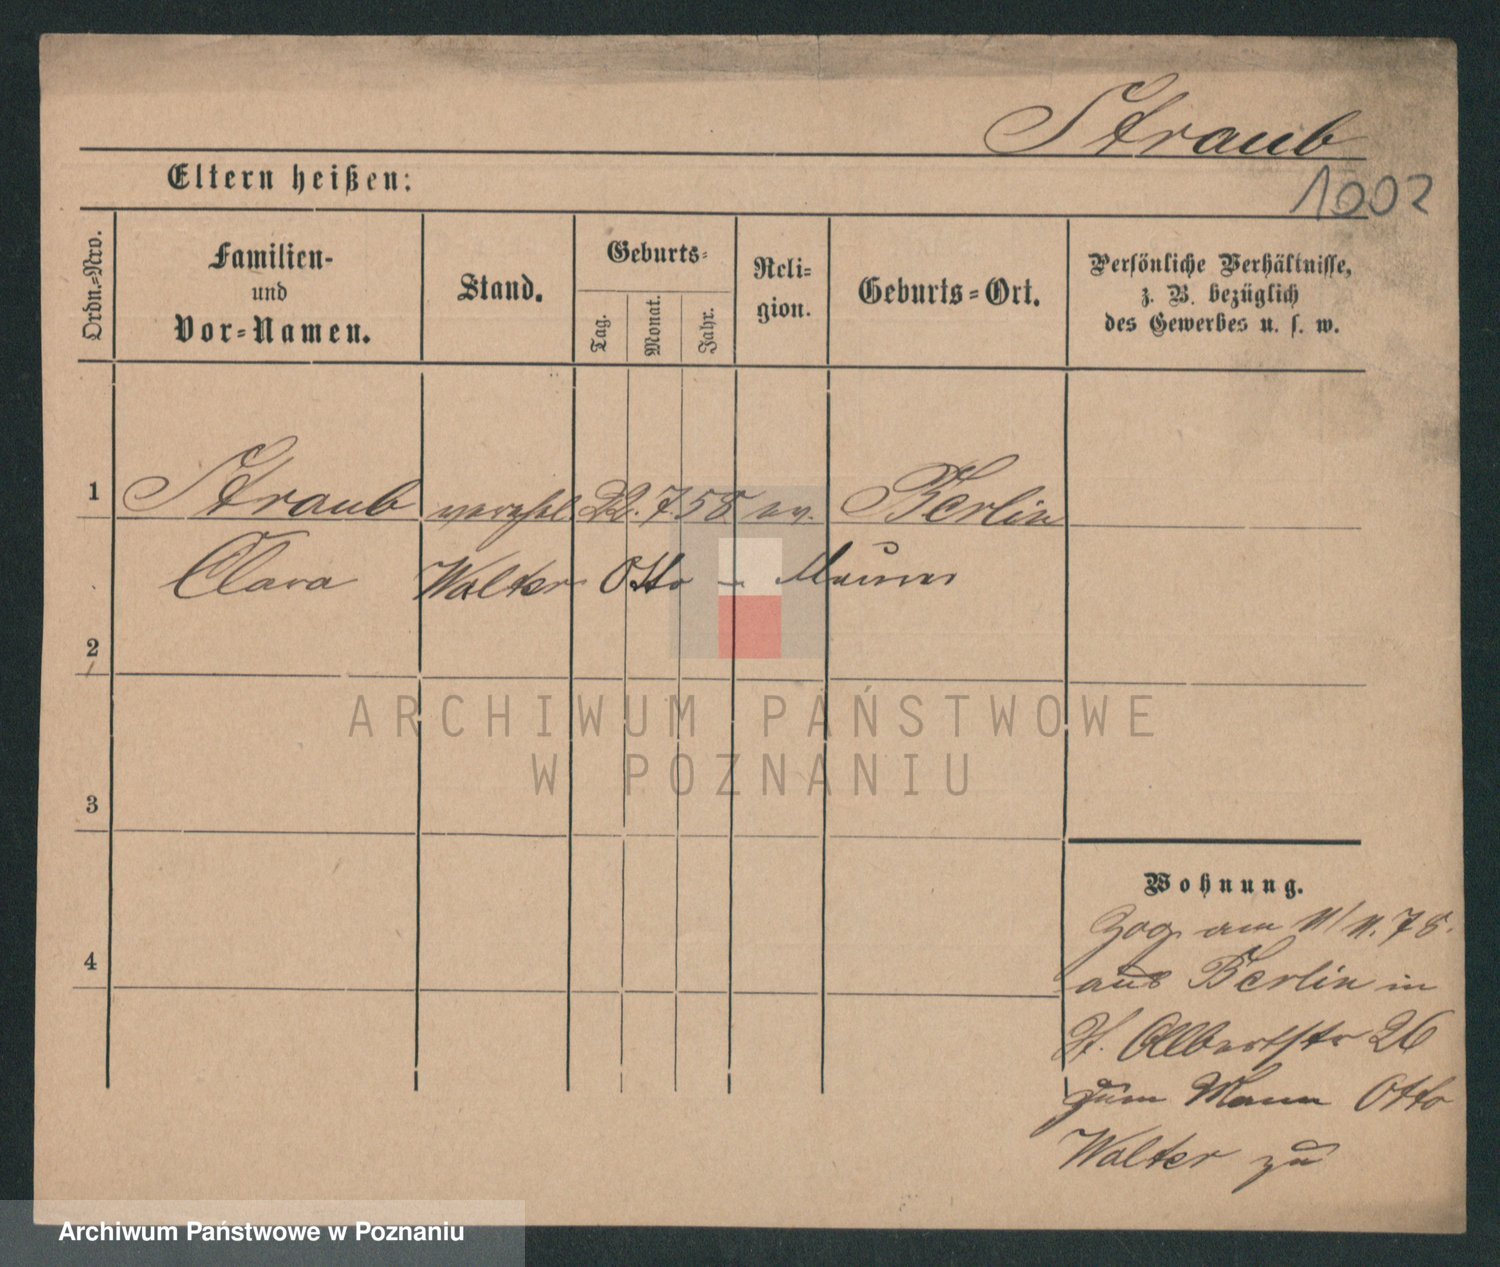 Straub
1002
Eltern heißen:
Ordn.-Nro.
Familien-
und
Vor-Namen.
Stand.
Geburts-
Tag.
Monat.
Jahr.
Reli-
gion.
Geburts-Ort.
Persönliche Verhältnisse,
z. B. bezüglich
des Gewerbes u. s. w.
1 Straub verehel. 22. 7. 58 ev. Berlin
Clara Walter Otto -
2
ARCHIWUM PAŃSTWOWE
W POZNANIU
3
Wohnung.
Zog am 11/11. 78.
4
aus Berlin in
St. Albertstr 26
zum Mann Otto
Walter zu
Archiwum Państwowe w Poznaniu